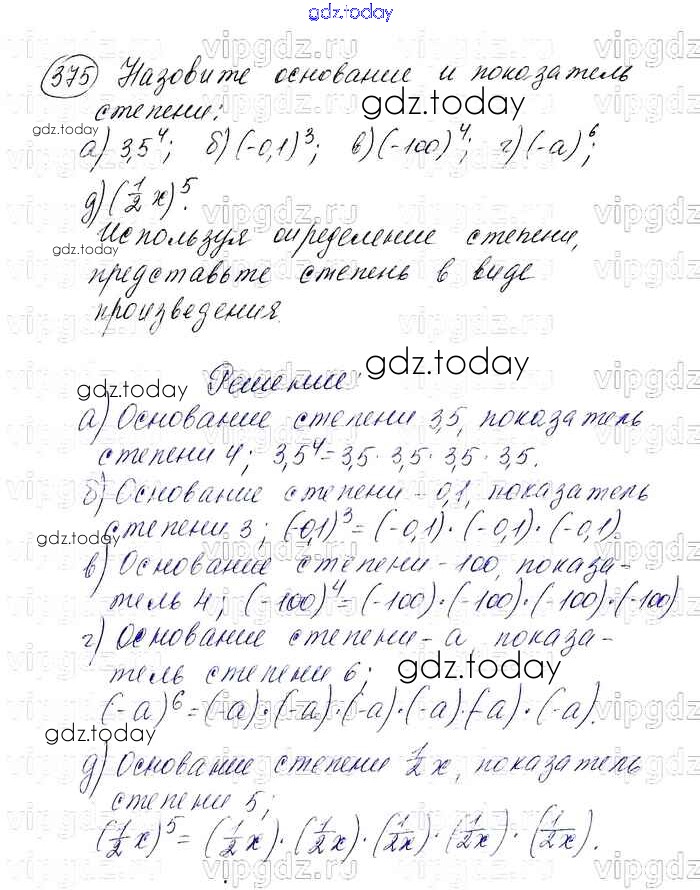 gdz.today
375 Назовите основание и показатель
степени:
а) 3,5⁴; б) (-0,1)³; в) (-100)⁴; г) (-а)⁶;
д) (1/2 x)⁵.
Используя определение степени,
представьте степень в виде
произведения.
Решение:
а) Основание степени 3,5, показатель
степени 4; 3,5⁴ = 3,5 · 3,5 · 3,5 · 3,5.
б) Основание степени -0,1, показатель
степени 3; (-0,1)³ = (-0,1) · (-0,1) · (-0,1).
в) Основание степени -100, показа-
тель 4; (-100)⁴ = (-100) · (-100) · (-100) · (-100)
г) Основание степени -а, показа-
тель степени 6;
(-а)⁶ = (-а) · (-а) · (-а) · (-а) · (-а) · (-а).
д) Основание степени 1/2 x, показатель
степени 5;
(1/2 x)⁵ = (1/2 x) · (1/2 x) · (1/2 x) · (1/2 x) · (1/2 x).